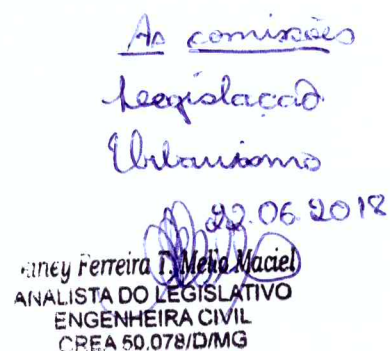 As comissões
Legislação
Urbanismo
22.06.2018
Ferreira T. Melo Maciel
ANALISTA DO LEGISLATIVO
ENGENHEIRA CIVIL
CREA 50.078/D/MG